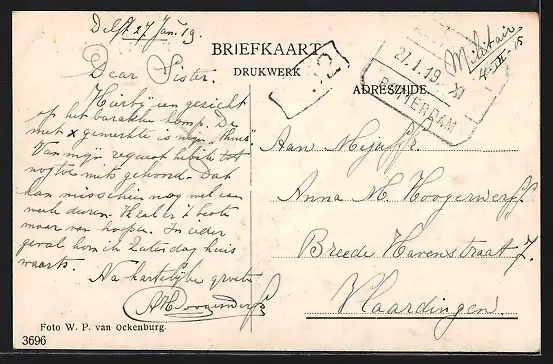 Delft 27 Jan. 19.
BRIEFKAART
DRUKWERK
ADRESZIJDE.
27.1.19 XI
ROTTERDAM
Militair
Dear Sister.
Hierbij een gezicht
op het barakken komp. De
met x gemerkte is mijn "thuis".
Van mijn request heb ik tot
nog toe niets gehoord. Dat
kan misschien nog wel een
maar van hopen. In ieder
geval kom ik Zaterdag huis
waarts.
Na hartelijke groeten
AHoogerwerff
Aan Mejuffr.
Anna M. Hoogerwerff.
Breede Havenstraat 7.
Vlaardingen.
Foto W. P. van Ockenburg
3696